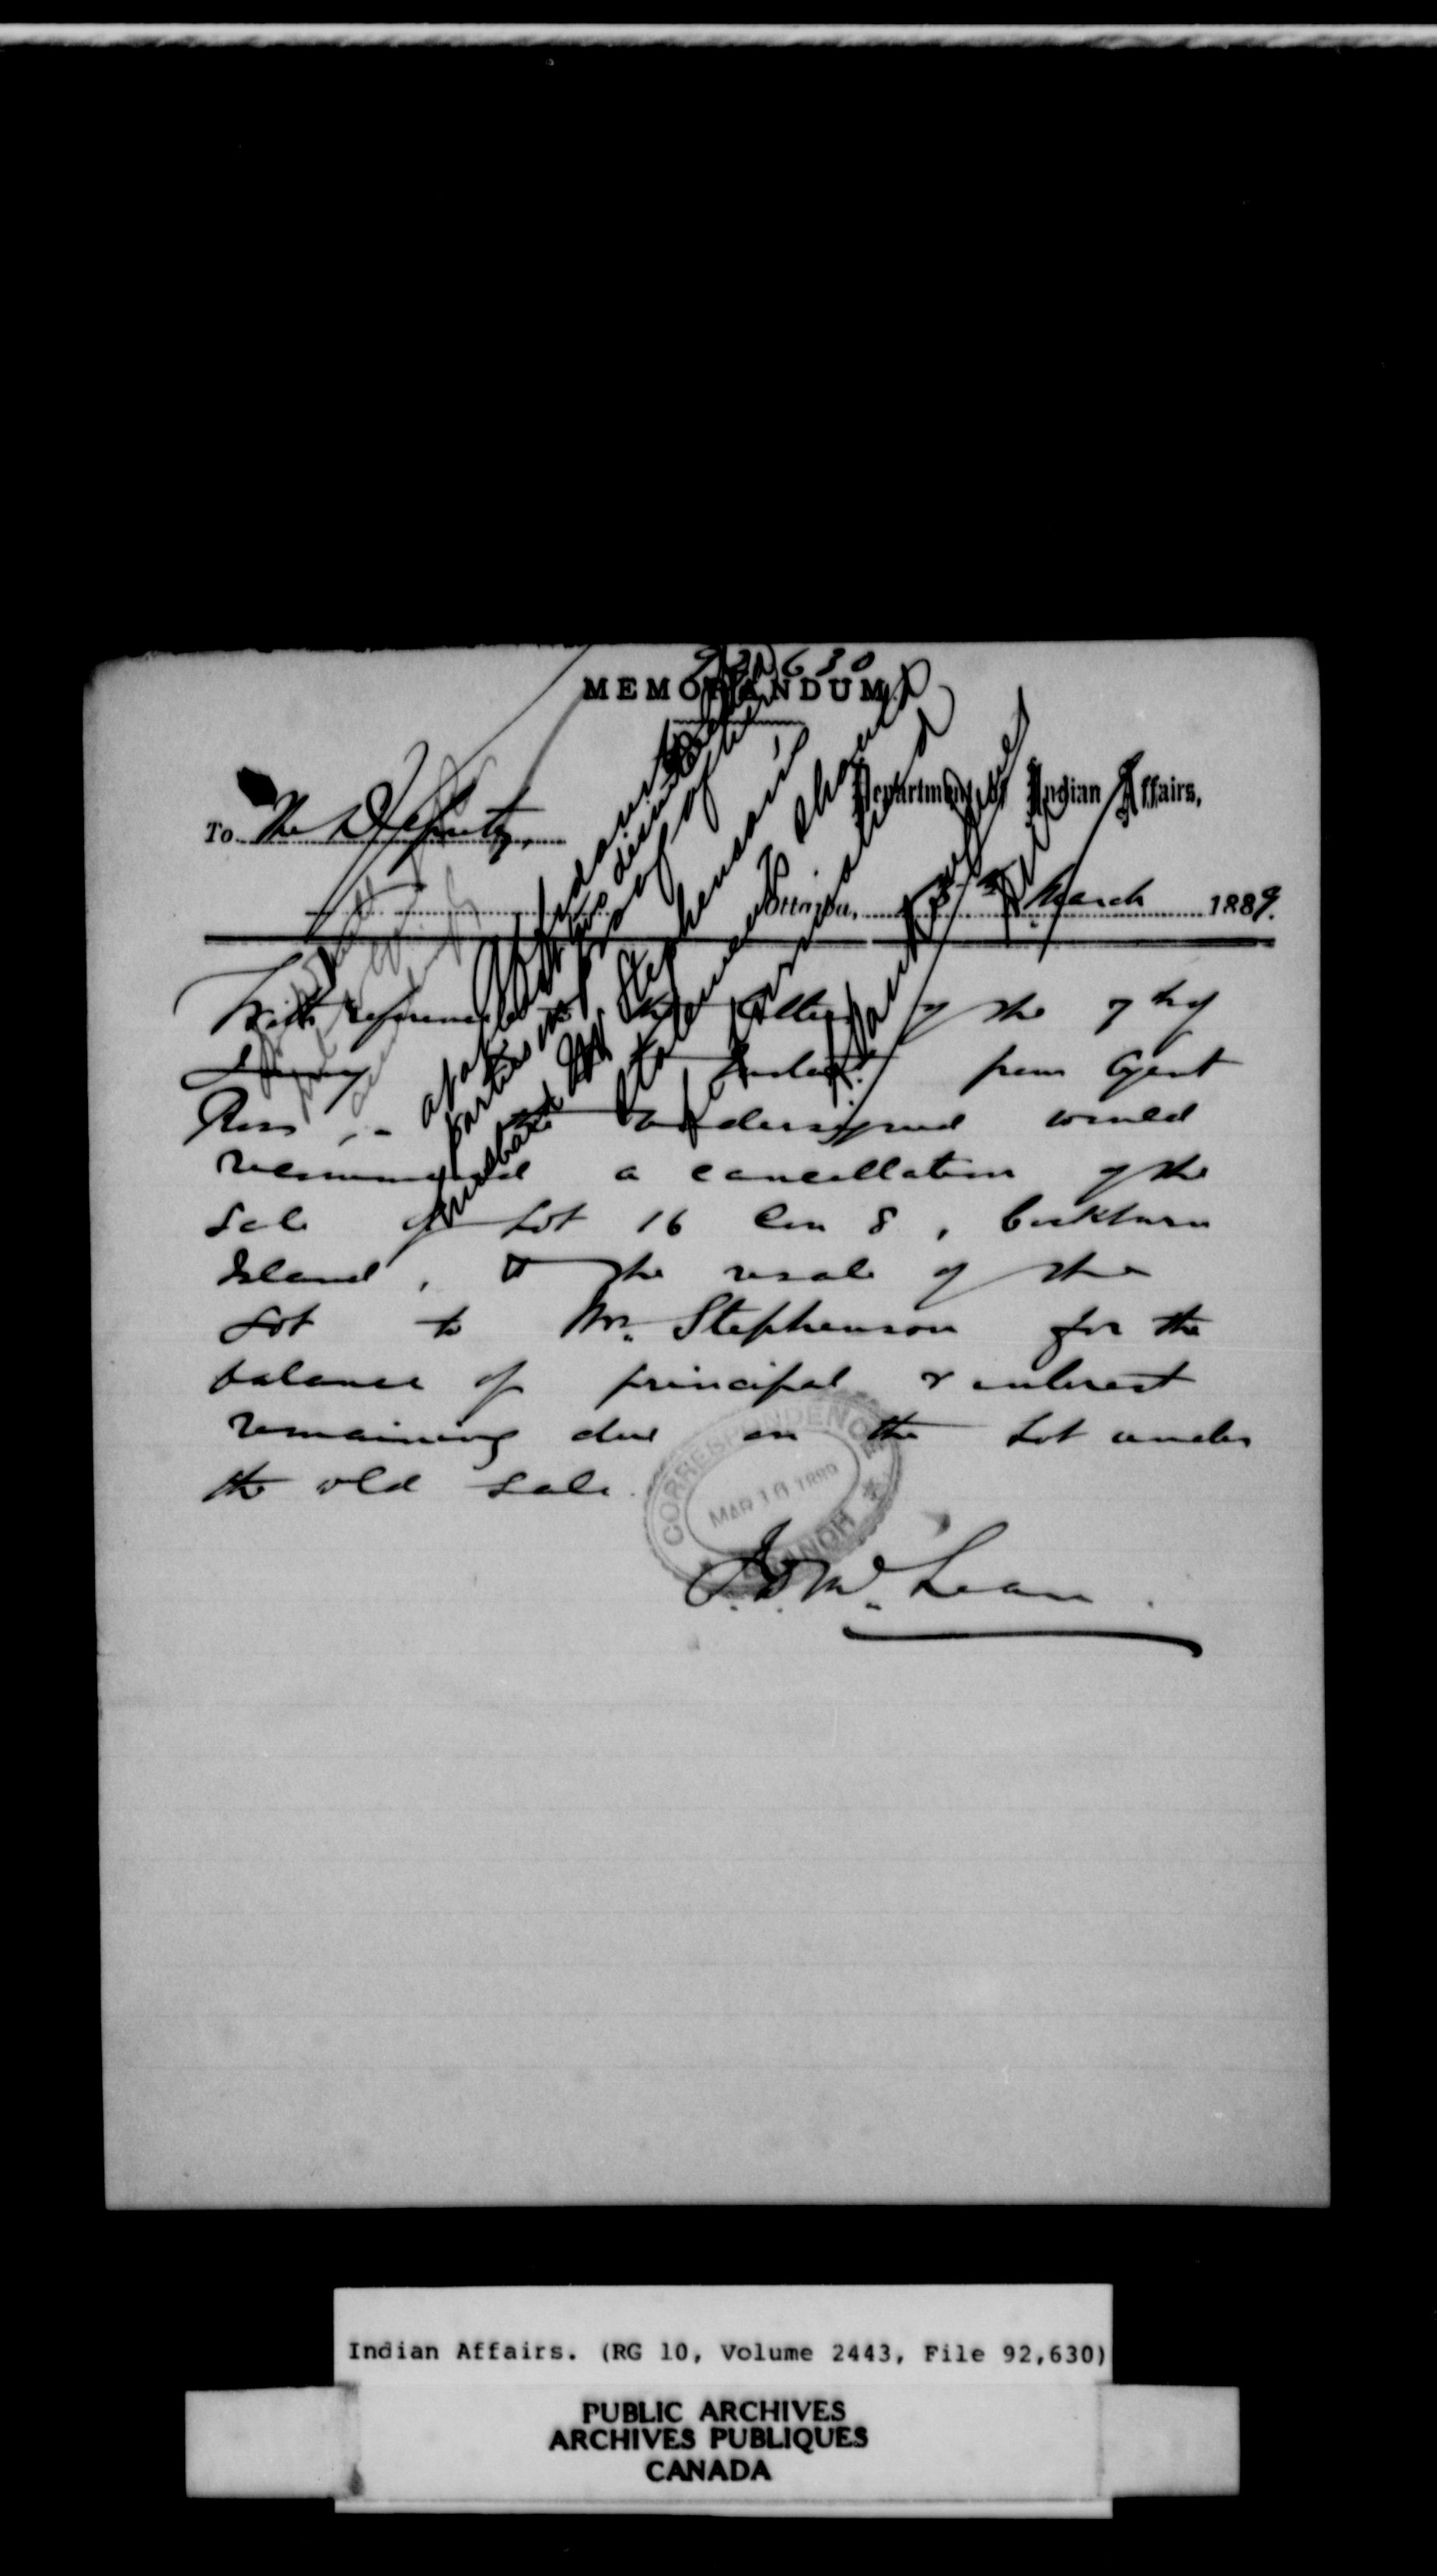 92630
MEMORANDUM
Department of Indian Affairs,
To The Deputy,
Ottawa, March 1889.
With reference to the letter of the 7th of
from Agent
Ross, the undersigned would
recommend a cancellation of the
sale of Lot 16 Con 8, Cockburn
Island, & the resale of the
Lot to Mr. Stephenson for the
balance of principal & interest
remaining due on the Lot under
the old sale.
J. D. McLean.
CORRESPONDENCE
MAR 16 1889
BRANCH
Affidavit
of at least two disinterested
parties in proof of the
Stephenson's
statement should
Indian Affairs. (RG 10, Volume 2443, File 92,630)
PUBLIC ARCHIVES
ARCHIVES PUBLIQUES
CANADA